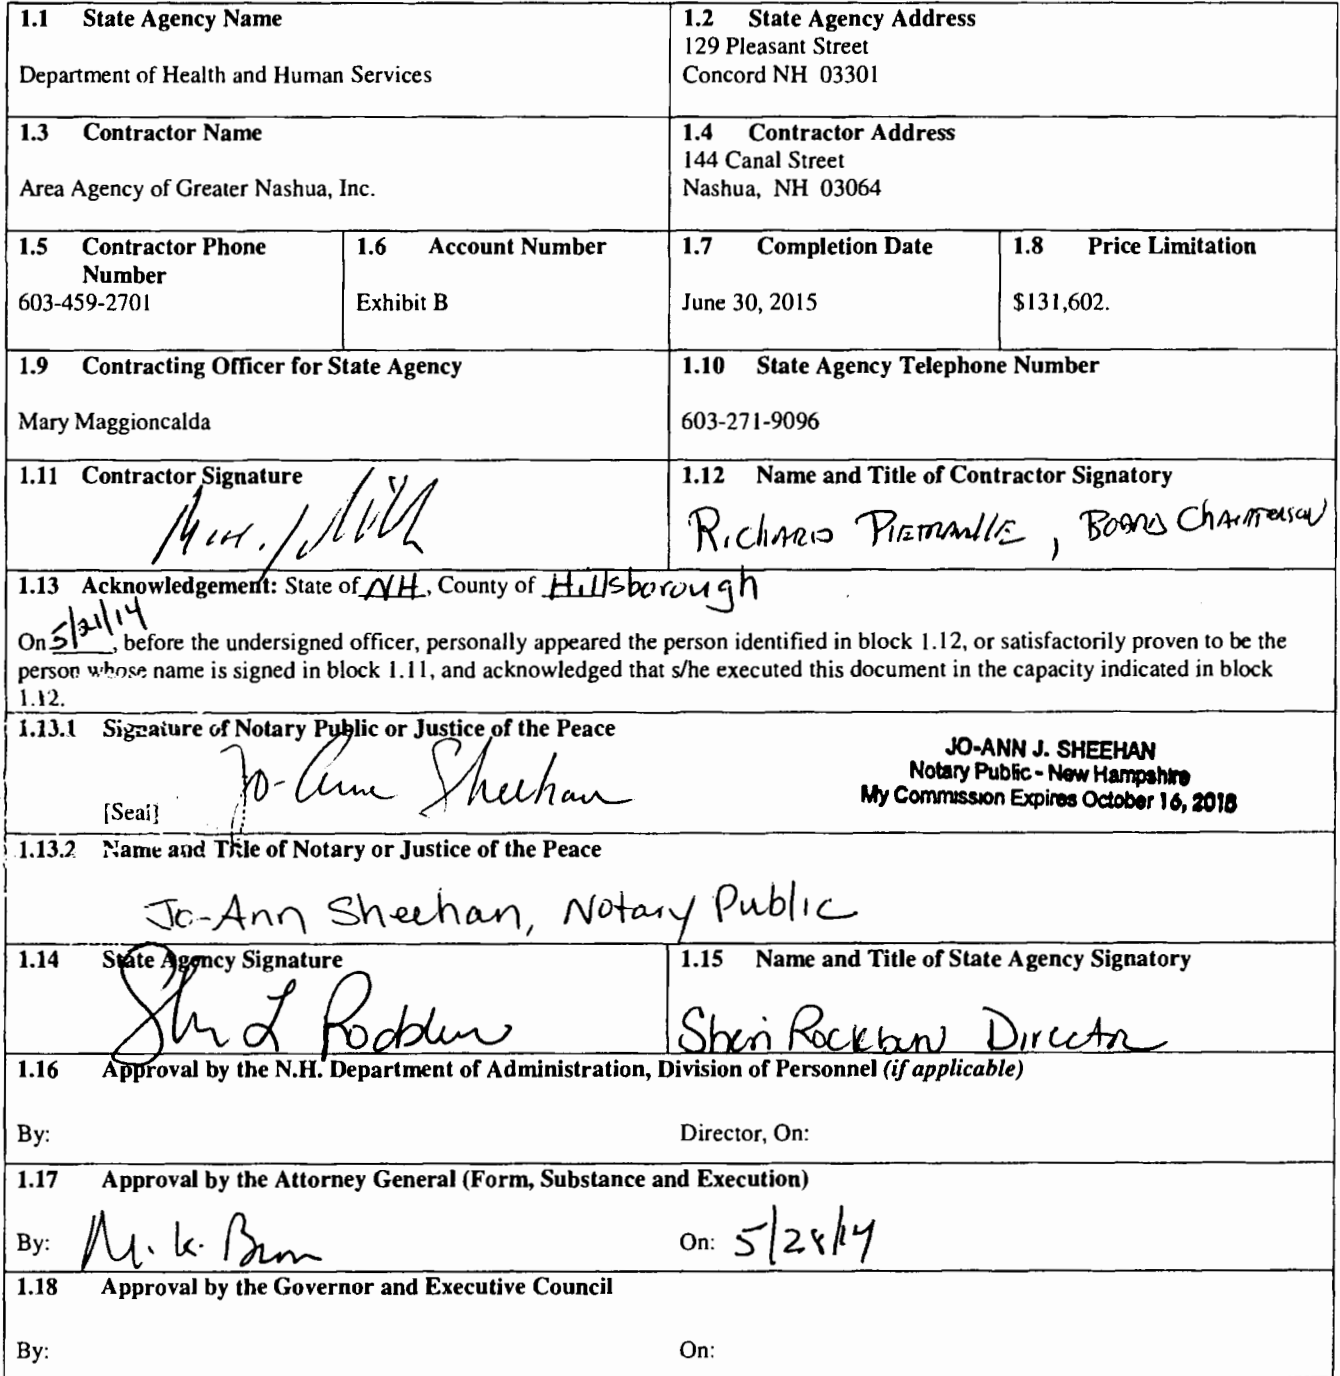 1.1 State Agency Name
Department of Health and Human Services
1.2 State Agency Address
129 Pleasant Street
Concord NH 03301
1.3 Contractor Name
Area Agency of Greater Nashua, Inc.
1.4 Contractor Address
144 Canal Street
Nashua, NH 03064
1.5 Contractor Phone
Number
603-459-2701
1.6 Account Number
Exhibit B
1.7 Completion Date
June 30, 2015
1.8 Price Limitation
$131,602.
1.9 Contracting Officer for State Agency
Mary Maggioncalda
1.10 State Agency Telephone Number
603-271-9096
1.11 Contractor Signature
1.12 Name and Title of Contractor Signatory
Richard , Board Chairperson
1.13 Acknowledgement: State of NH, County of Hillsborough
On 5/21/14, before the undersigned officer, personally appeared the person identified in block 1.12, or satisfactorily proven to be the
person whose name is signed in block 1.11, and acknowledged that s/he executed this document in the capacity indicated in block
1.12.
1.13.1 Signature of Notary Public or Justice of the Peace
Jo-Ann Sheehan
[Seal]
JO-ANN J. SHEEHAN
Notary Public - New Hampshire
My Commission Expires October 16, 2018
1.13.2 Name and Title of Notary or Justice of the Peace
Jo-Ann Sheehan, Notary Public
1.14 State Agency Signature
1.15 Name and Title of State Agency Signatory
Sheri Rockburn Director
1.16 Approval by the N.H. Department of Administration, Division of Personnel (if applicable)
By:
Director, On:
1.17 Approval by the Attorney General (Form, Substance and Execution)
By: M. K. Brown
On: 5/28/14
1.18 Approval by the Governor and Executive Council
By:
On: